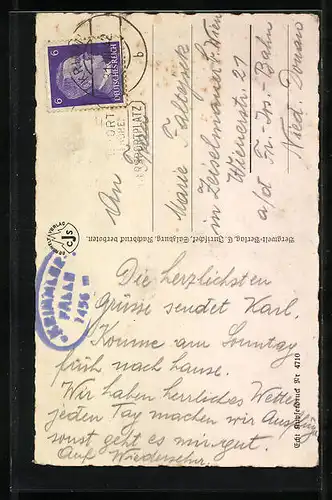 6
DEUTSCHES REICH
6
An Frau
Marie Falzeseck
in Zeiselmauer b. Wien
Wienerstr. 21
a/d Fr-Jos-Bahn
Nied. Donau
Bergwelt-Verlag, C. Jurischek, Salzburg, Nachdruck verboten.
CJS
KRIMMLER
FÄLLE
1456 m
Die herzlichsten
Grüsse sendet Karl.
Komme am Sonntag
früh nach hause.
Wir haben herrliches Wetter
jeden Tag machen wir Ausflüge
sonst geht es mir gut.
Auf Wiedersehn.
Echt Kupferdruck Nr 4710